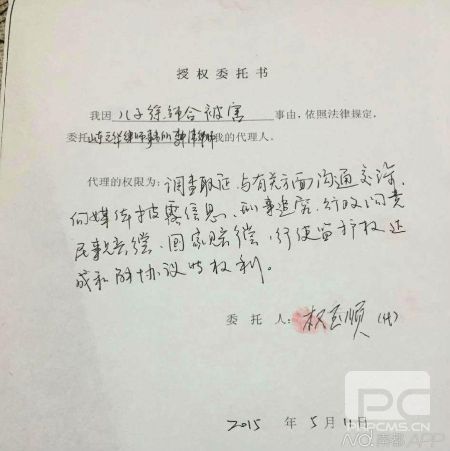 授权委托书
我因 儿子徐纯合被害 事由，依照法律规定，
委托山东 律师事务所 我的代理人。
代理的权限为：调查取证、与有关方面沟通交涉、
向媒体披露信息、刑事追究、行政问责
民事赔偿、国家赔偿、行使监护权、达
成和解协议等权利。
委托人：权玉顺（代）
2015 年 5 月 11 日
PC
PHPCMS.CN
APP